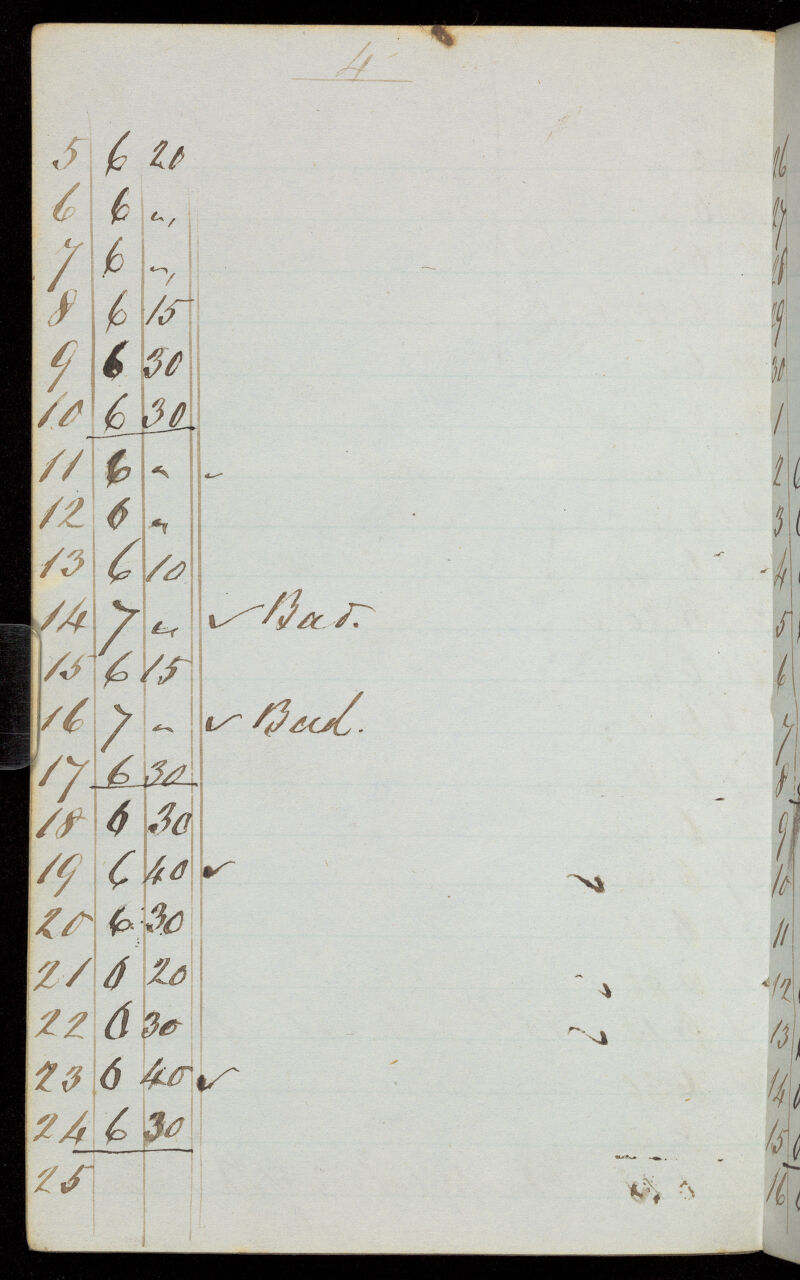 4
5 6 20
6 6 „
7 6 „
8 6 15
9 6 30
10 6 30
11 6 „
12 6 „
13 6 10
14 7 „ ✓ Bad.
15 6 15
16 7 „ ✓ Bad.
17 6 30
18 6 30
19 6 40 ✓
20 6 30
21 6 20
22 6 30
23 6 40 ✓
24 6 30
25
26
27
28
29
30
1
2
3
4
5
6
7
8
9
10
11
12
13
14
15
16